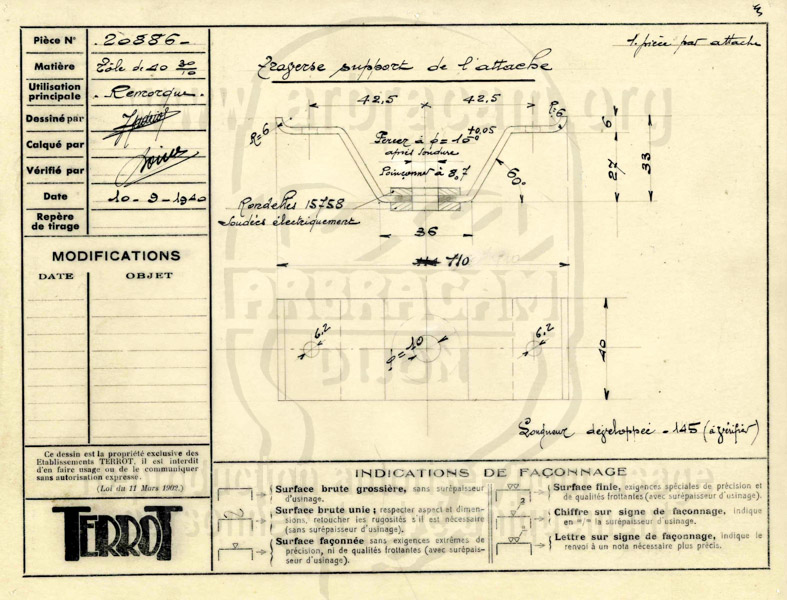 Pièce N° 20886-
Matière Tôle de 40 30/10
Utilisation
principale - Remorque -
Dessiné par
Calqué par
Vérifié par
Date 10-9-1940
Repère
de tirage
MODIFICATIONS
DATE OBJET
Ce dessin est la propriété exclusive des
Etablissements TERROT, il est interdit
d'en faire usage ou de le communiquer
sans autorisation expresse.
(Loi du 11 Mars 1902.)
TERROT
1 pièce par attache
Traverse support de l'attache
42,5 42,5
R=6
R=6
Percer à φ = 10 +0,05 0
après soudure
Poinçonner à 8,7
60°
6
27
33
Rondelles 15758
soudées électriquement
36
110
6,2
φ=10
6,2
40
Longueur développée - 145 (à vérifier)
INDICATIONS DE FAÇONNAGE
Surface brute grossière, sans surépaisseur
d'usinage.
Surface brute unie ; respecter aspect et dimen-
sions, retoucher les rugosités s'il est nécessaire
(sans surépaisseur d'usinage).
Surface façonnée sans exigences extrêmes de
précision, ni de qualités frottantes (avec surépais-
seur d'usinage).
Surface finie, exigences spéciales de précision et
de qualités frottantes (avec surépaisseur d'usinage).
Chiffre sur signe de façonnage, indique
en m/m la surépaisseur d'usinage.
Lettre sur signe de façonnage, indique le
renvoi à un nota nécessaire plus précis.
www.arbracam.org
ARBRACAM
DIJON